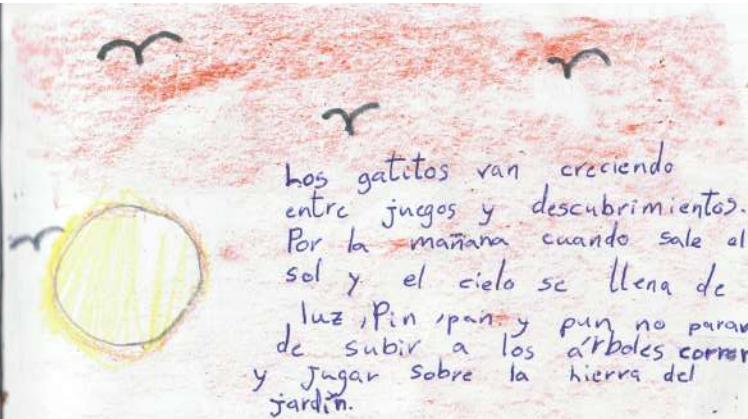 Los gatitos van creciendo
entre juegos y descubrimientos.
Por la mañana cuando sale el
sol y el cielo se llena de
luz, Pin, pan y pun no paran
de subir a los árboles correr
y jugar sobre la hierra del
jardín.